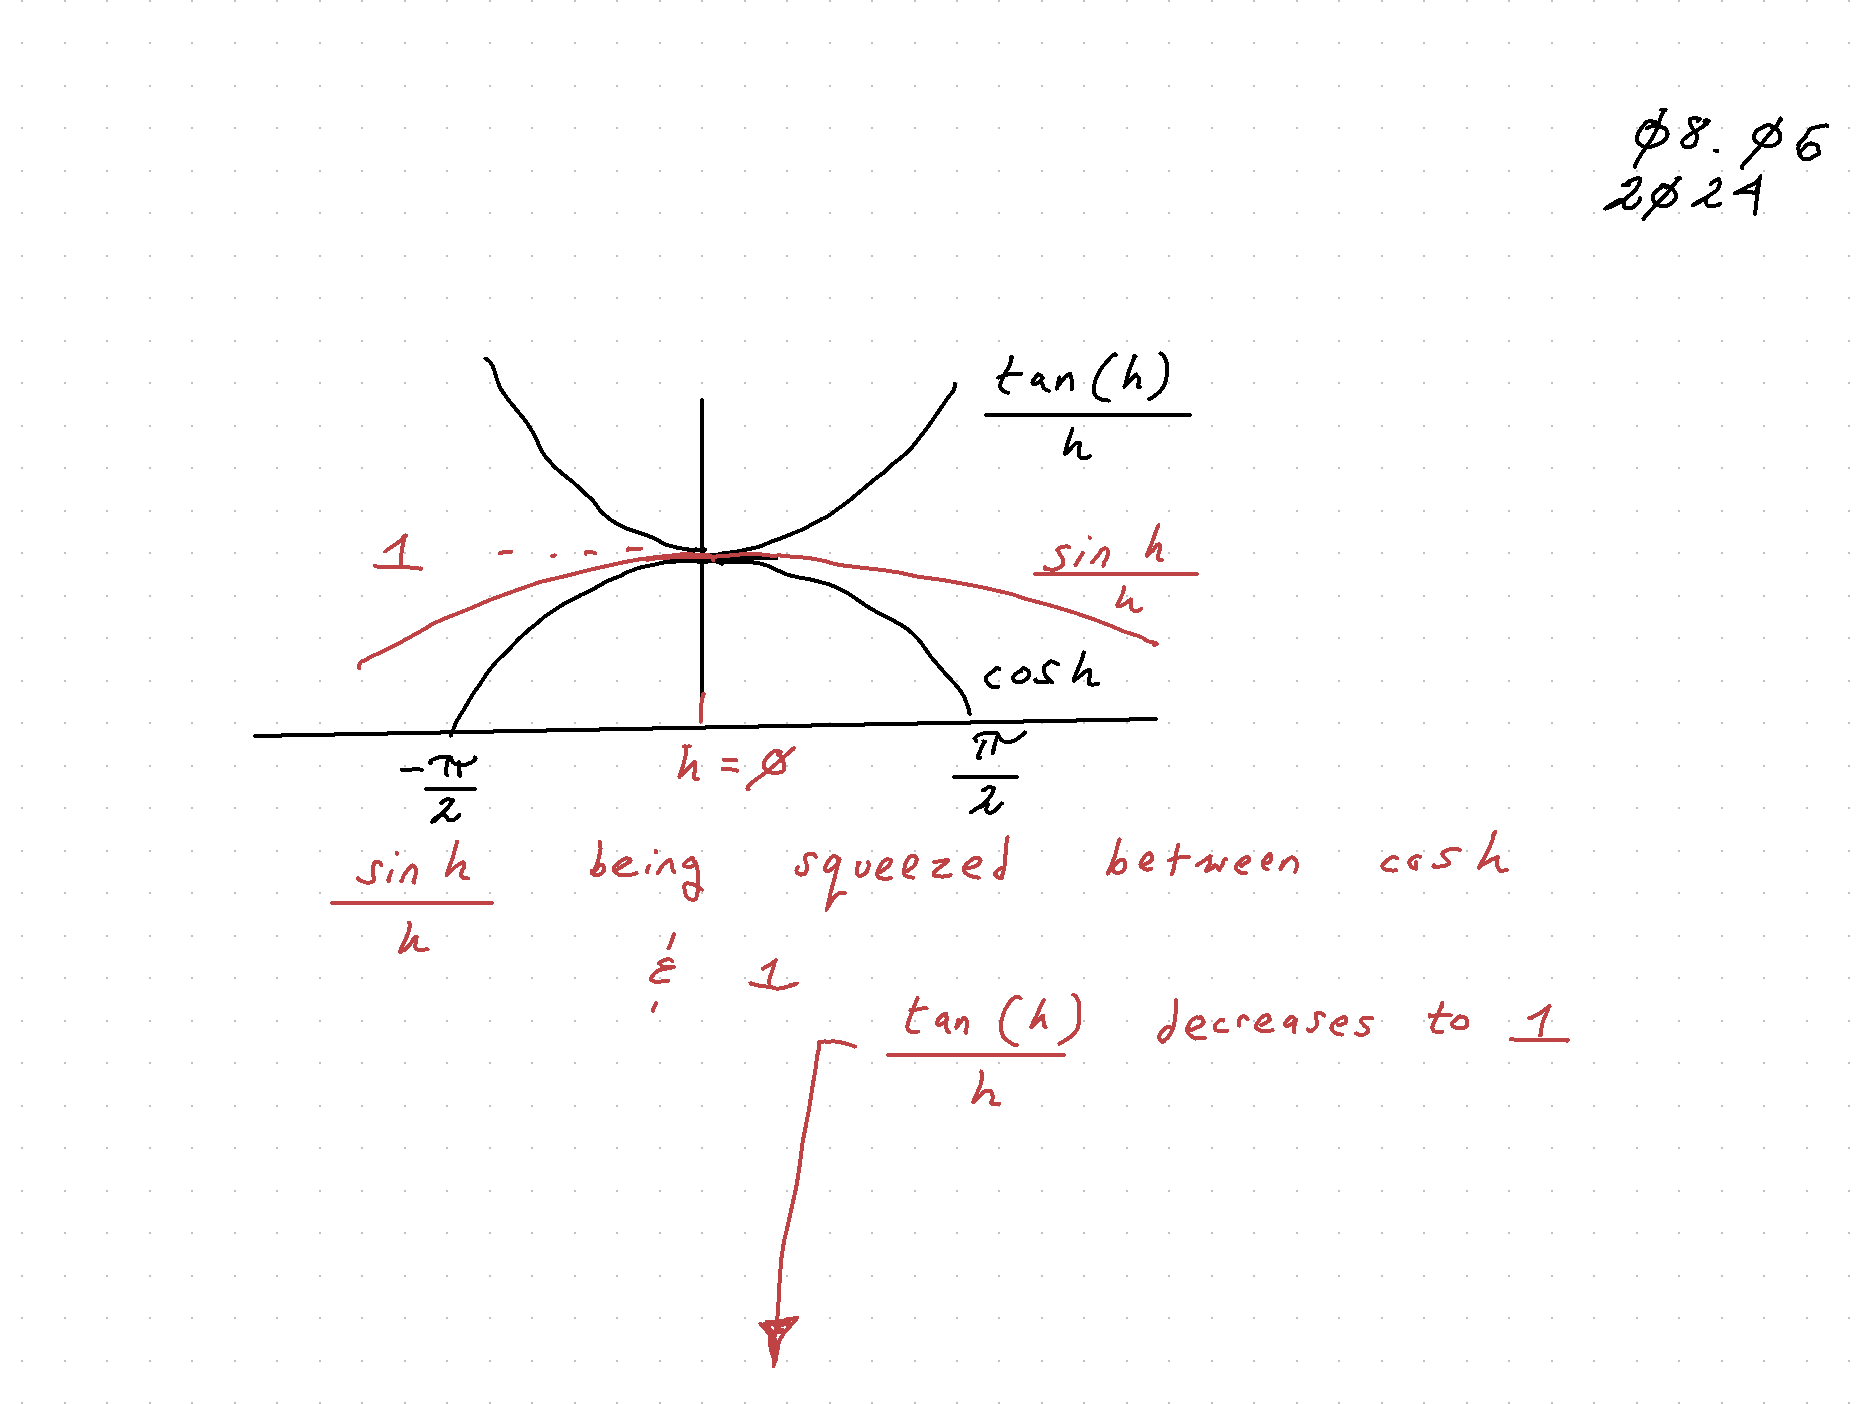 ø8. ø6
2ø24
tan(h)
h
1
sin h
h
cosh
-π
2
h = ø
π
2
sin h being squeezed between cosh
h
& 1
tan (h) decreases to 1
h